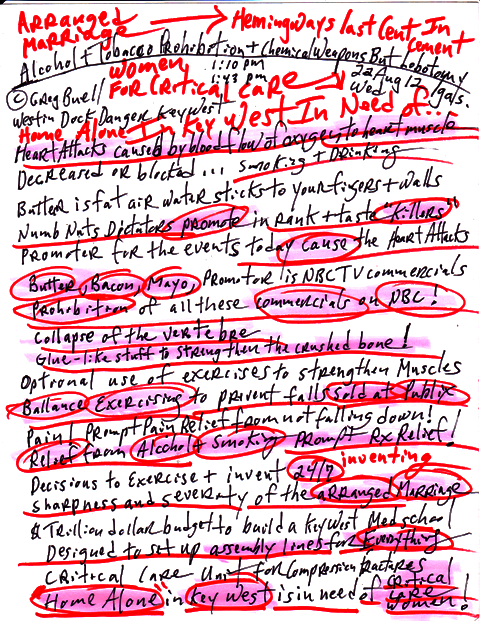 Arranged Marriage → Hemingways last Cent In Cement
Alcohol + Tobacco Prohibition + Chemical Weapons But
Women, 1:10 pm
For Critical Care 1:43 pm 22 Aug 12 Wed
© Greg Buell/
Westin Dock Danger Key West
Home Alone In Key West In Need of...
Heart Attacks caused by blood flow of oxygen to heart muscle
Decreased or blocked... Smoking + Drinking
Butter is fat air water sticks to your figers + walls
Numb Nuts Dictators promote in rank + taste "Killers"
Promoter for the events today cause the Heart Attacks
Butter, Bacon, Mayo, Promotor is NBC TV commercials
Prohibition of all these commercials on NBC!
Collapse of the vertebre
Glue-like stuff to strengthen the crushed bone!
Optional use of exercises to strengthen Muscles
Ballance Exercising to prevent falls Sold at Publix
Pain! Prompt Pain Relief from not falling down!
Relief from Alcohol + Smoking Prompt Rx Relief!
Decisions to Exercise + invent 24/7 inventing
sharpness and severaty of the arranged Marriage
$ Trillion dollar budget to build a Key West Med school
Designed to set up assembly lines for Everything
Critical Care Unit for Compression fractures
Home Alone in Key West is in need of Critical Care Women!